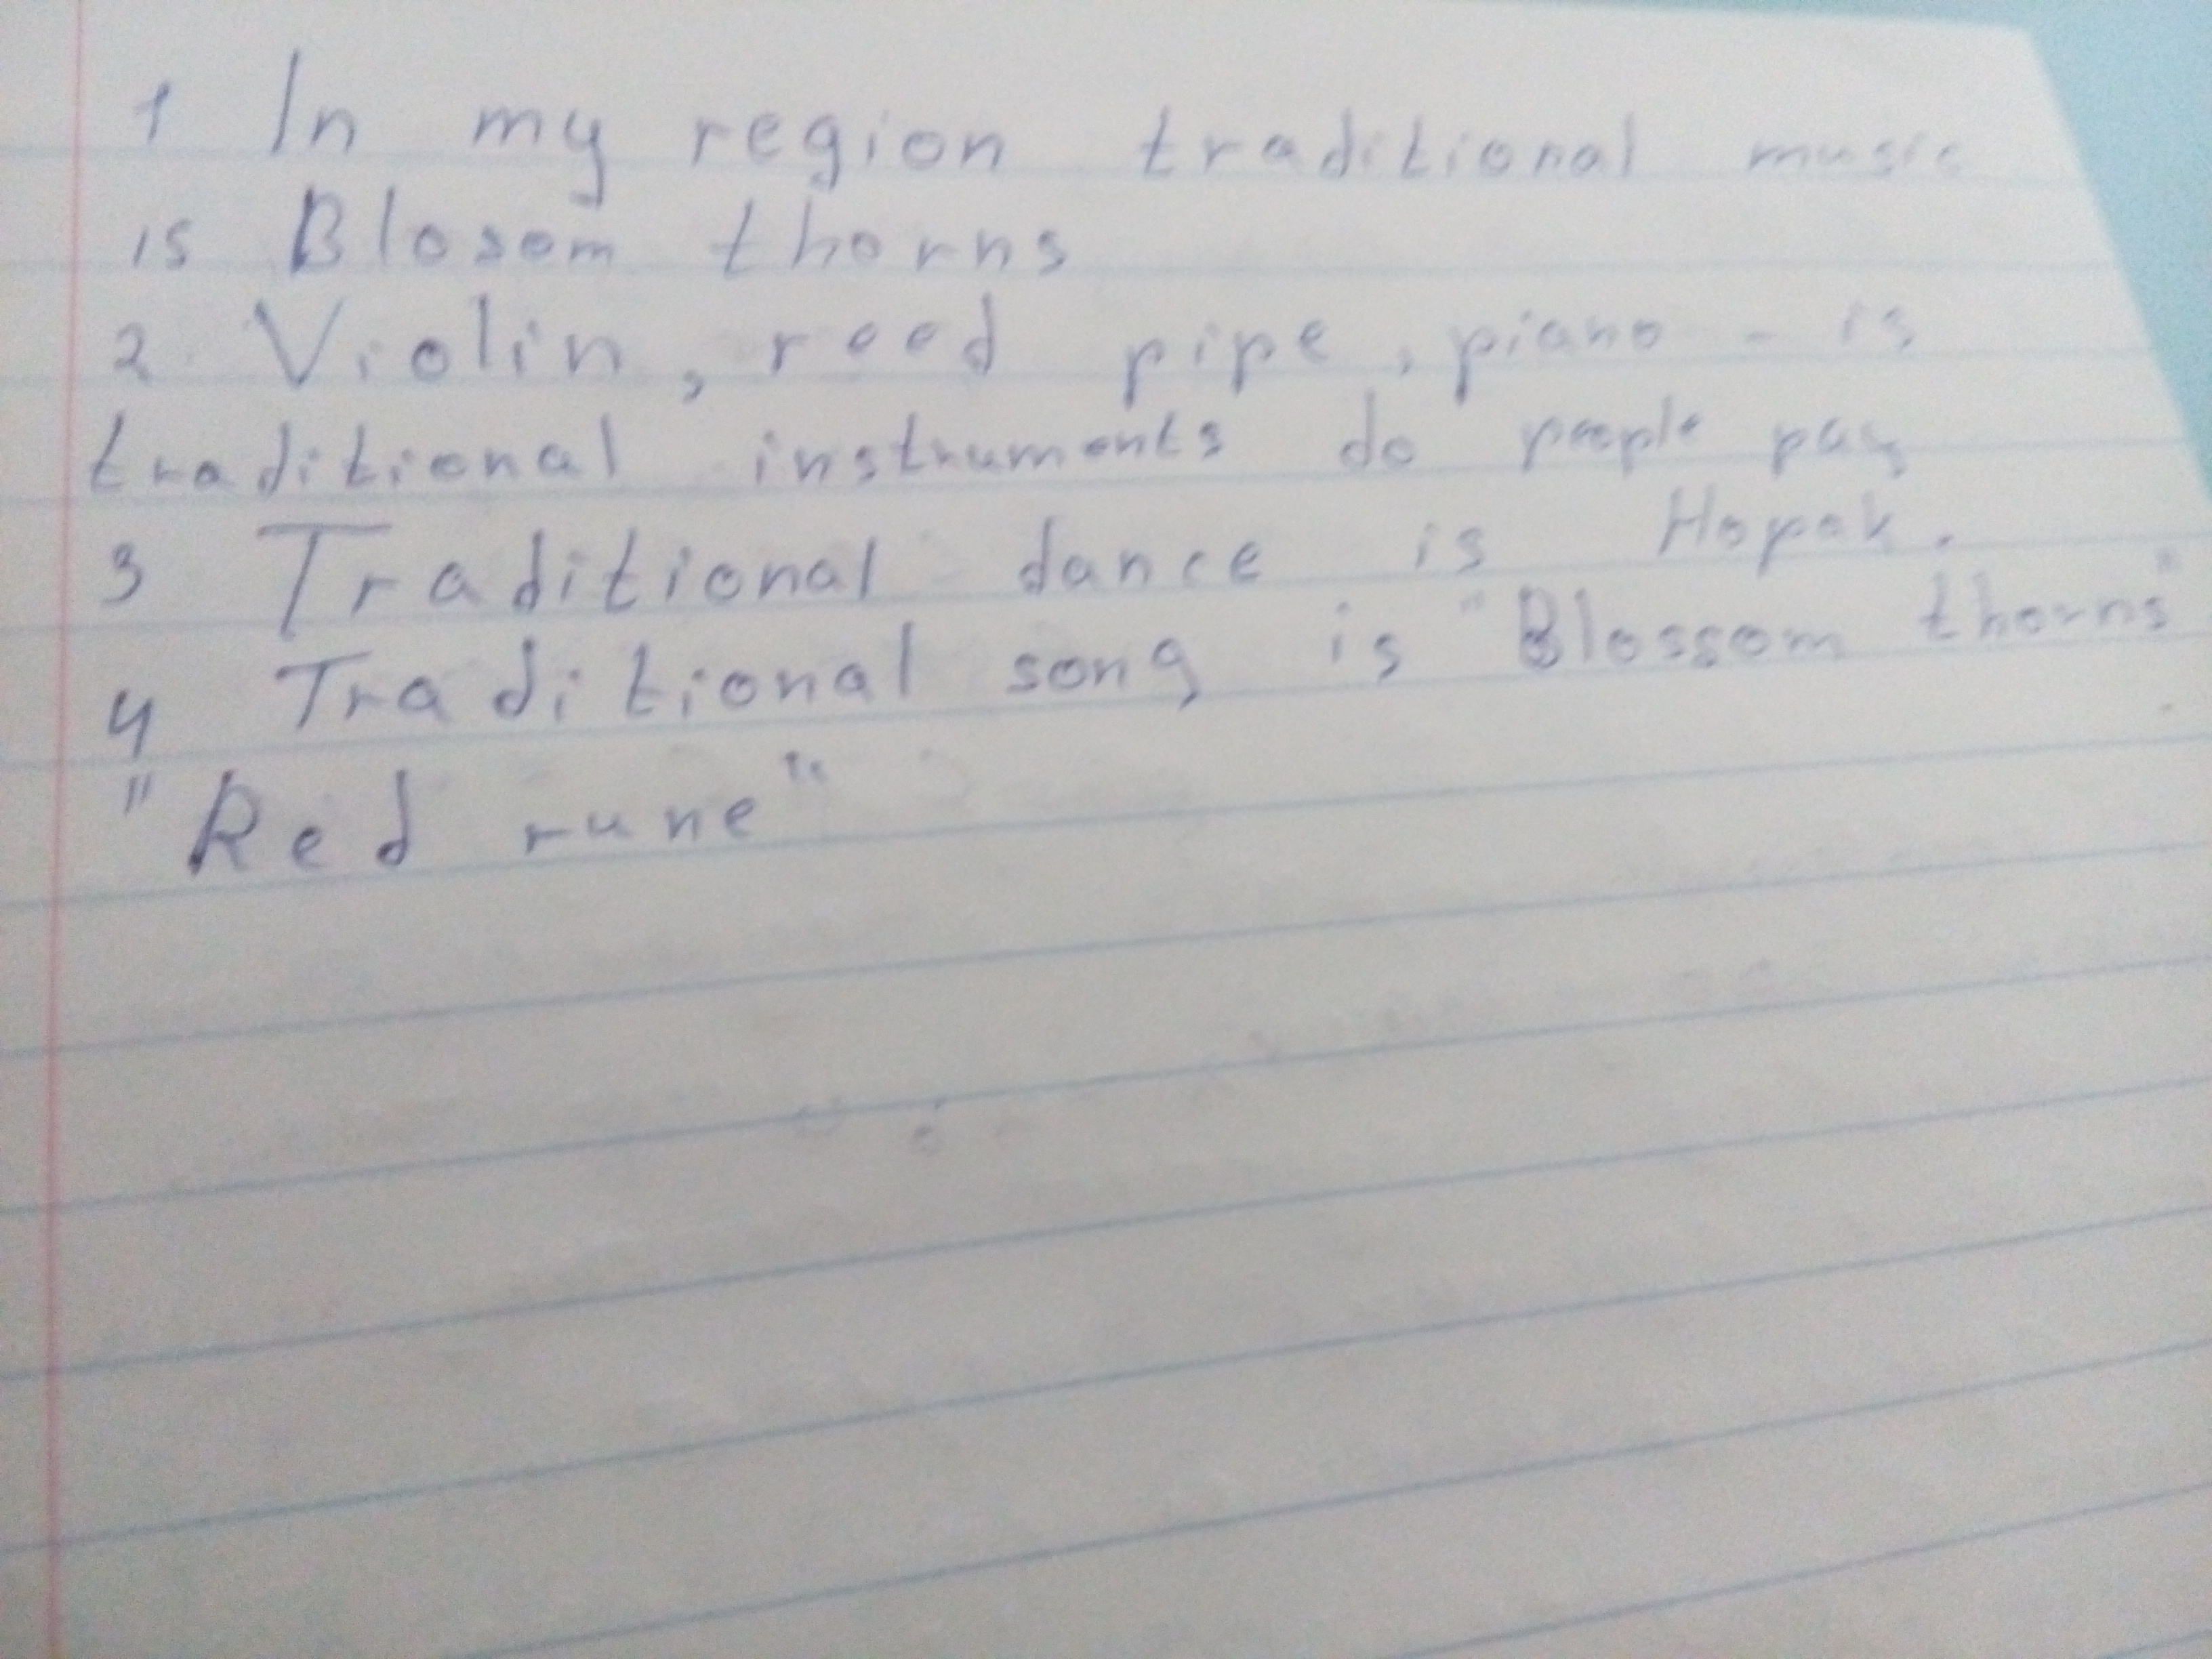 1 In my region traditional music
is Blosom thorns
2. Violin, reed pipe, piano - is
traditional instruments do people pay
3 Traditional dance is Hopak.
4 Traditional song is "Blossom thorns"
"Red rune"